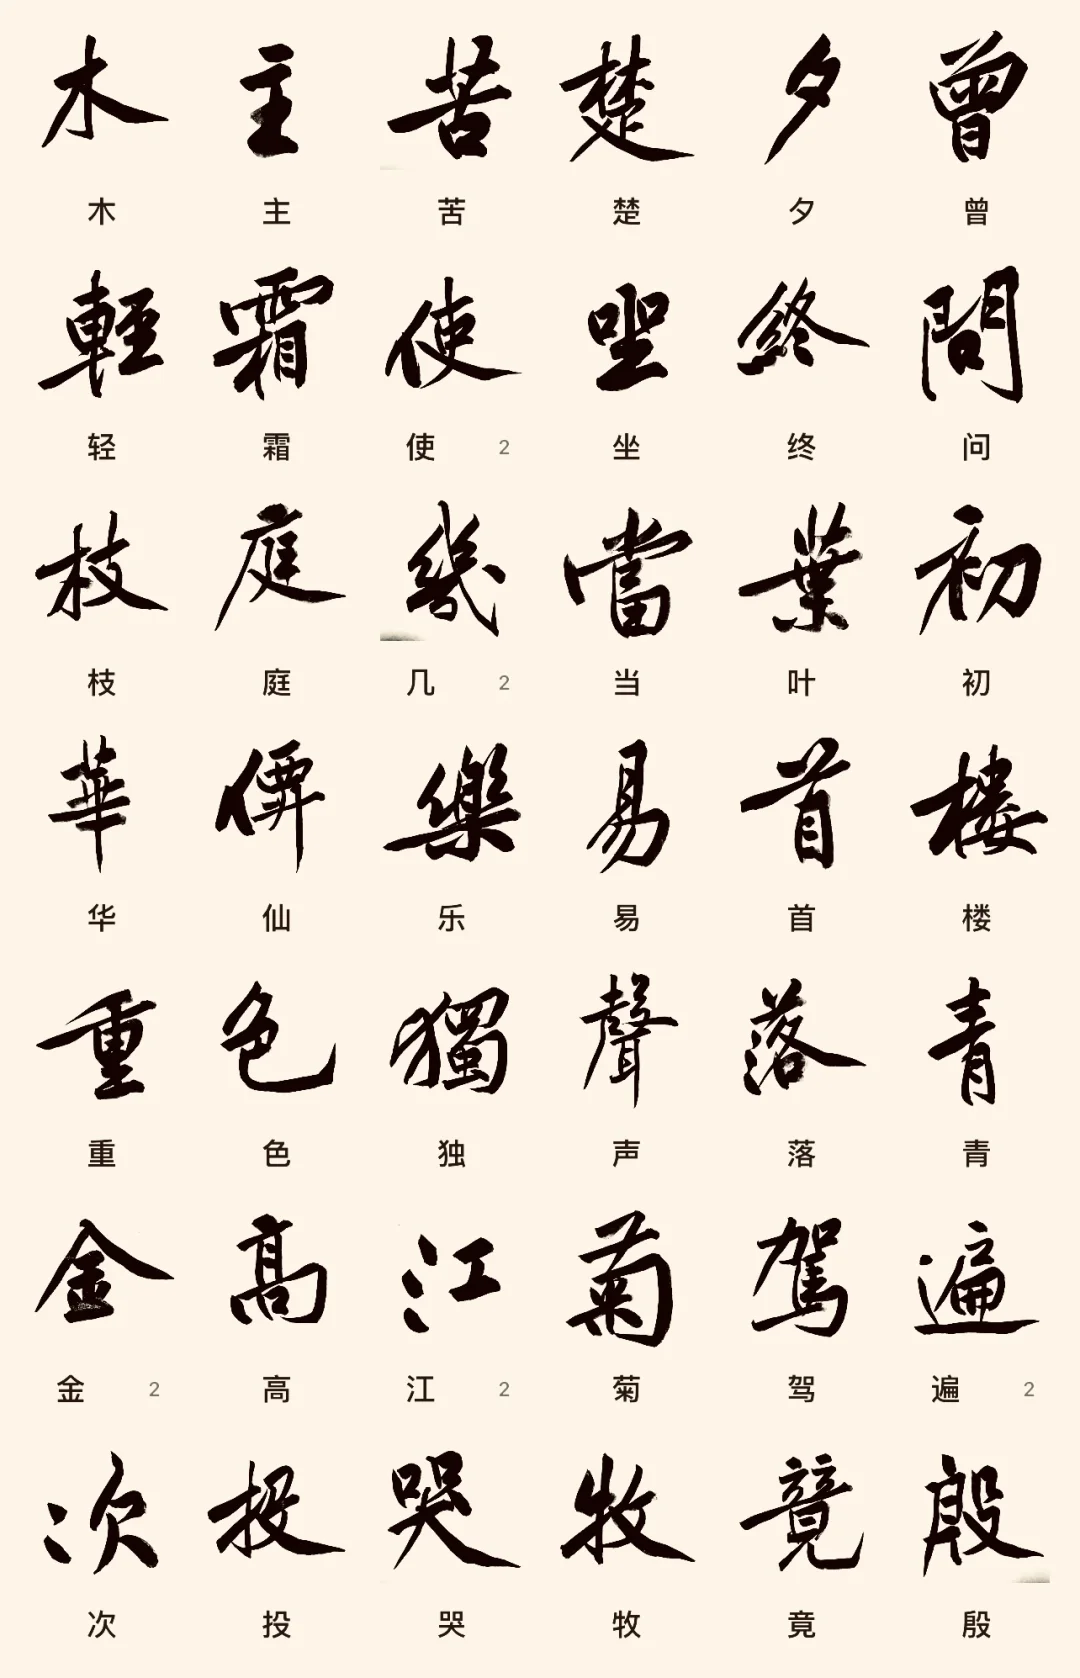 木 主 苦 楚 夕 曾
木 主 苦 楚 夕 曾
輕 霜 使 坐 終 問
轻 霜 使 2 坐 终 问
枝 庭 幾 當 葉 初
枝 庭 几 2 当 叶 初
華 僊 樂 易 首 楼
华 仙 乐 易 首 楼
重 色 獨 聲 落 青
重 色 独 声 落 青
金 高 江 菊 駕 遍
金 2 高 江 2 菊 驾 遍 2
次 投 哭 牧 竟 殷
次 投 哭 牧 竟 殷